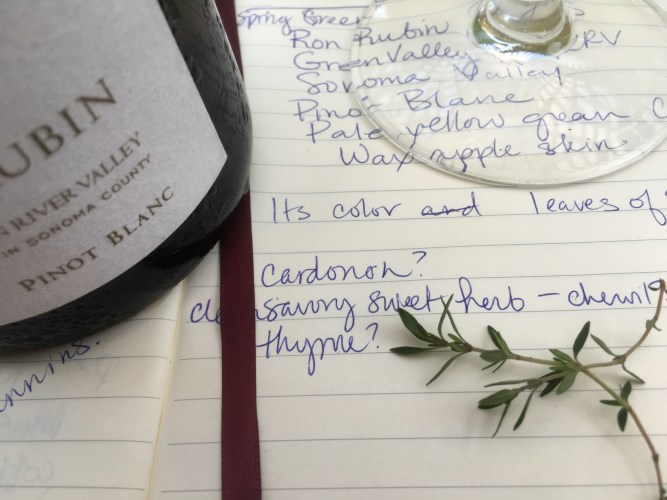 UBIN
N RIVER VALLEY
IN SONOMA COUNTY
PINOT BLANC
Spring Green
Ron Rubin RV
Green Valley
Sonoma Valley
Pinot Blanc
Pale yellow green
Wax apple skin
Its color and leaves of
cardonon?
savory sweet herb - chervil
thyme?
nnins.